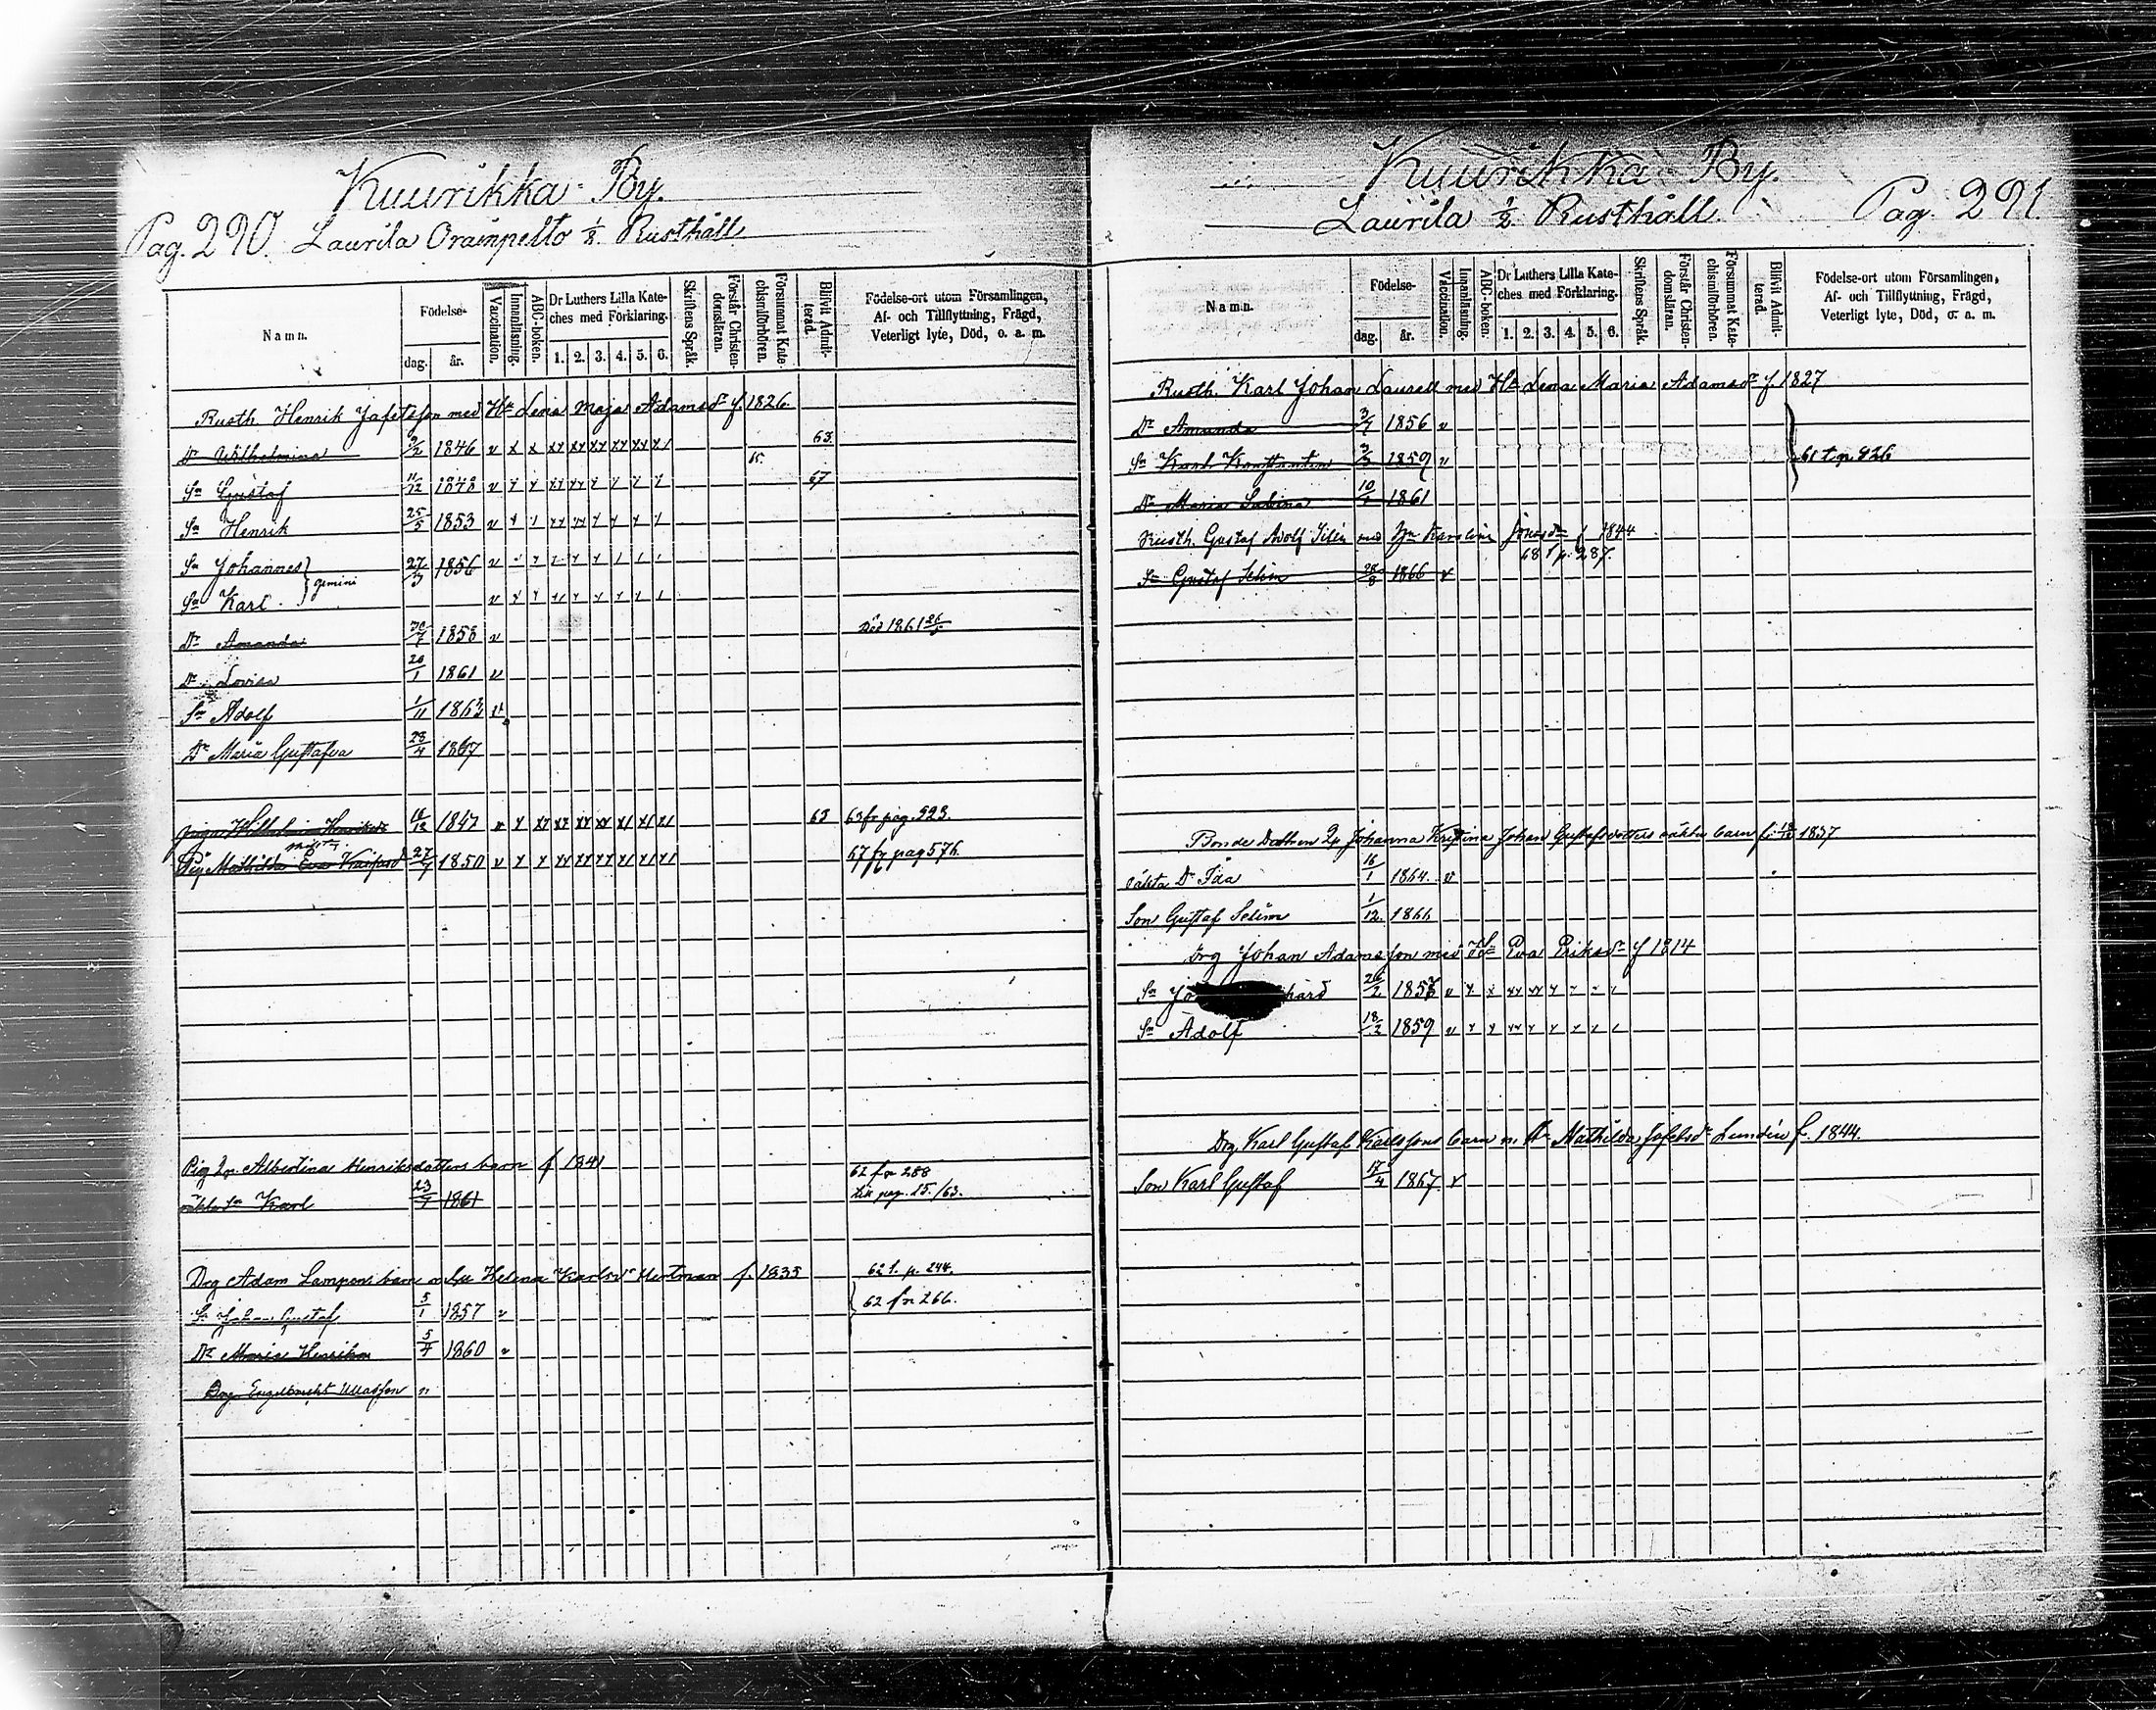 Kuurikka By.
Pag. 290. Laurila Orainpelto 1/8 Rusthåll
Namn.
Födelse-
dag.
år.
Vaccination.
Innanläsning.
ABC-boken.
Dr Luthers Lilla Kate-
ches med Förklaring.
1. 2. 3. 4. 5. 6.
Skriftens Språk.
Förstår Christen-
domsläran.
Försummat Kate-
chismiförhören.
Blifvit Admit-
terad.
Födelse-ort utom Församlingen,
Af- och Tillflyttning, Frägd,
Veterligt lyte, Död, o. a. m.
Rusth. Henrik Jafetsson med Hu Lena Maja Adamsdr f. 1826.
Dr Wilhelmina 9/2 1846 v x x xx xx xx xx xx x1 63.
Sn Gustaf 11/12 1848 v 67
Sn Henrik 25/5 1853 v
Sn Johannes } gemini 27/3 1856 v
Sn Karl v
Dr Amanda 1858 v Död 1861 26/5
Dr Lovisa 20/1 1861 v
Sn Adolf 1/11 1863 v
Dr Maria Gustafva 23/4 1867
Piga Wilhelmina Henriksdr 1847 v 63 63 fr pag. 223.
Pig Mathilda Eva 27/7 1850 v 67 fr pag 576.
Pig Qp. Albertina Henriksdotters barn f 1841 62 fr 288
oäkta Sn Karl 23/7 1861 till pag. 15./63.
Drg Adam Lampens barn m Hu Helena Karlsdr f. 1833 62 t. p. 244.
Sn Johan Gustaf 5/1 1857 v } 62 fr 266.
Dr Maria Henrika 5/7 1860 v
Drg Engelbrecht
Kuurikka By.
Laurila 1/2 Rusthåll Pag. 291.
Namn.
Födelse-
dag.
år.
Vaccination.
Innanläsning.
ABC-boken.
Dr Luthers Lilla Kate-
ches med Förklaring.
1. 2. 3. 4. 5. 6.
Skriftens Språk.
Förstår Christen-
domsläran.
Försummat Kate-
chismiförhören.
Blifvit Admit-
terad.
Födelse-ort utom Församlingen,
Af- och Tillflyttning, Frägd,
Veterligt lyte, Död, o. a. m.
Rusth. Karl Johan Laurell med Hu Lena Maria Adamsdr f. 1827
Dr Amanda 3/7 1856 v
Sn Karl Konstantin 1859 v } 61 t p. 826
Dr Maria Sabina 1861
Rusth. Gustaf Adolf Silén med Hu Karolina Jonasdr f 1844
68 t p. 287.
Sn Gustaf Selim 28/8 1866 v
Bonde Dottren Qp. Johanna Kristina Johan Gustafsdotters oäkta barn f. 1837
oäkta Dr Ida 16/1 1864. v
Son Gustaf Selim 1/12. 1866
Drg Johan Adamsson med Hu Eva Eriksdr f 1814
Sn Jo hard 26/2 v
Sn Adolf 18/2 1859 v
Drg Karl Gustaf Karlssons barn m. Hu Mathilda Jafetsdr Lundén f. 1844.
Son Karl Gustaf 17/4 1867 v